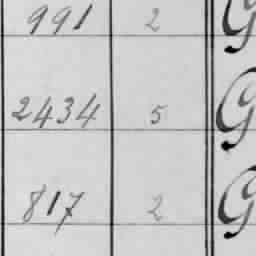 991 2 G
2434 5 G
817 2 G